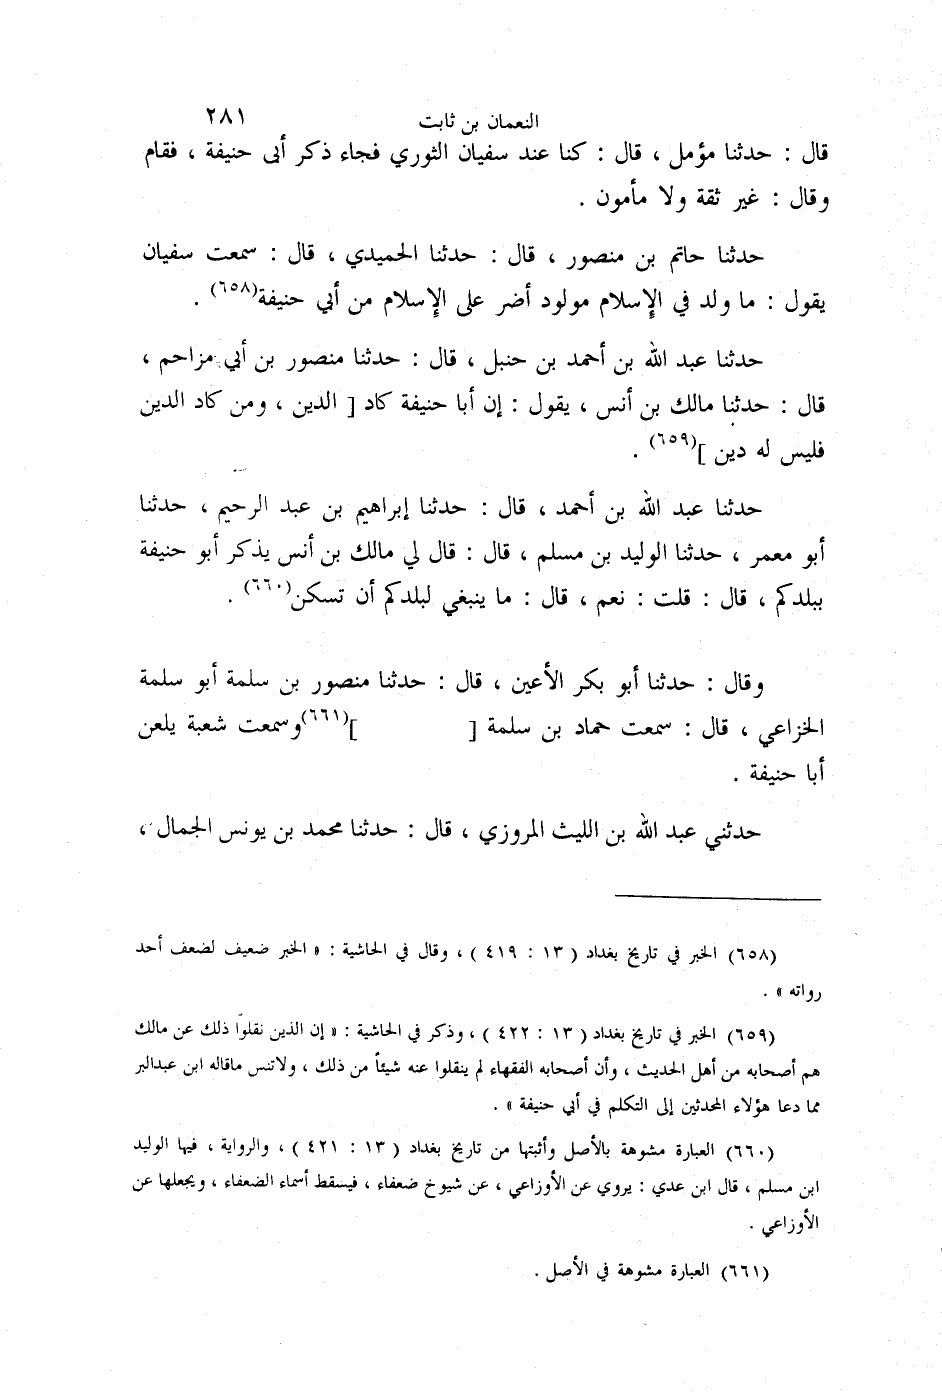 النعمان بن ثابت ٢٨١
قال : حدثنا مؤمل ، قال : كنا عند سفيان الثوري فجاء ذكر أبى حنيفة ، فقام
وقال : غير ثقة ولا مأمون .
حدثنا حاتم بن منصور ، قال : حدثنا الحميدي ، قال : سمعت سفيان
يقول : ما ولد في الإسلام مولود أضر على الإسلام من أبي حنيفة(٦٥٨) .
حدثنا عبد الله بن أحمد بن حنبل ، قال : حدثنا منصور بن أبي مزاحم ،
قال : حدثنا مالك بن أنس ، يقول : إن أبا حنيفة كاد [ الدين ، ومن كاد الدين
فليس له دين ](٦٥٩) .
حدثنا عبد الله بن أحمد ، قال : حدثنا إبراهيم بن عبد الرحيم ، حدثنا
أبو معمر ، حدثنا الوليد بن مسلم ، قال : قال لي مالك بن أنس يذكر أبو حنيفة
ببلدكم ، قال : قلت : نعم ، قال : ما ينبغي لبلدكم أن تسكن(٦٦٠) .
وقال : حدثنا أبو بكر الأعين ، قال : حدثنا منصور بن سلمة أبو سلمة
الخزاعي ، قال : سمعت حماد بن سلمة [ ](٦٦١) وسمعت شعبة يلعن
أبا حنيفة .
حدثني عبد الله بن الليث المروزي ، قال : حدثنا محمد بن يونس الجمال ،
(٦٥٨) الخبر في تاريخ بغداد ( ١٣ : ٤١٩ ) ، وقال في الحاشية : « الخبر ضعيف لضعف أحد
رواته » .
(٦٥٩) الخبر في تاريخ بغداد ( ١٣ : ٤٢٢ ) ، وذكر في الحاشية : « إن الذين نقلوا ذلك عن مالك
هم أصحابه من أهل الحديث ، وأن أصحابه الفقهاء لم ينقلوا عنه شيئاً من ذلك ، ولاتنس ماقاله ابن عبدالبر
مما دعا هؤلاء المحدثين إلى التكلم في أبي حنيفة » .
(٦٦٠) العبارة مشوهة بالأصل وأثبتها من تاريخ بغداد ( ١٣ : ٤٢١ ) ، والرواية ، فيها الوليد
ابن مسلم ، قال ابن عدي : يروي عن الأوزاعي ، عن شيوخ ضعفاء ، فيسقط أسماء الضعفاء ، ويجعلها عن
الأوزاعي .
(٦٦١) العبارة مشوهة في الأصل .